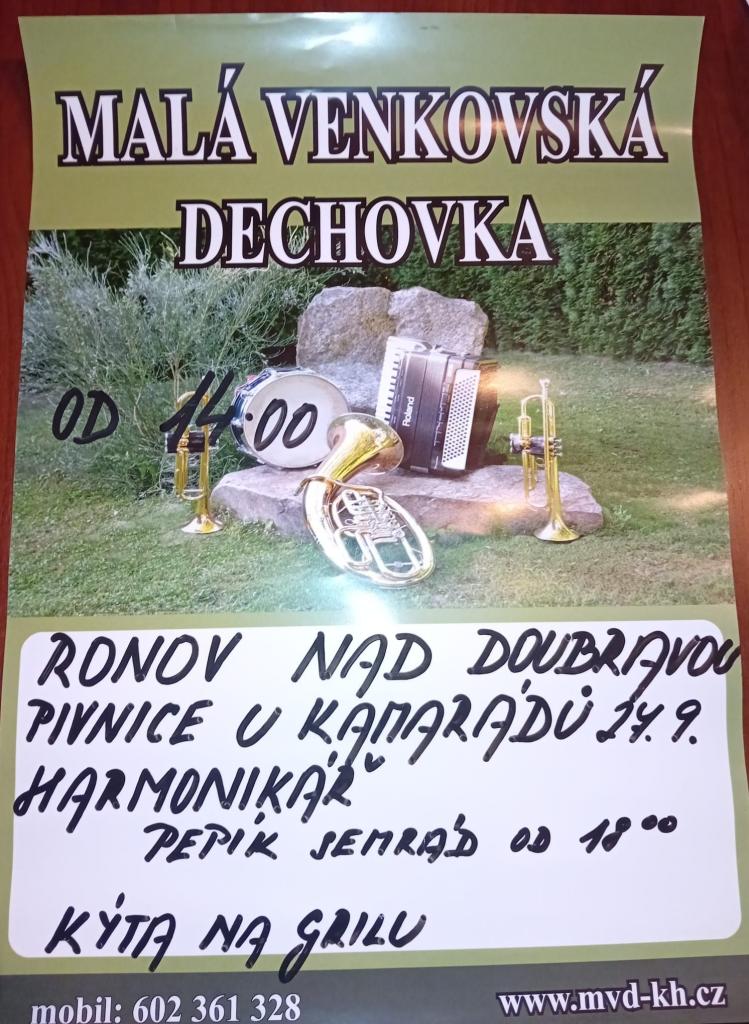 MALÁ VENKOVSKÁ
DECHOVKA
OD 14 00
Roland
RONOV NAD DOUBRAVOU
PIVNICE U KAMARÁDŮ 27.9.
HARMONIKÁŘ
PEPÍK SEMRÁD OD 18 00
KÝTA NA GRILU
mobil: 602 361 328
www.mvd-kh.cz